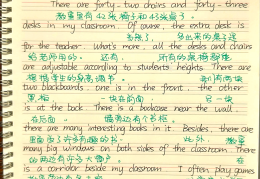 There are forty-two chairs and forty-three
教室里有42张椅子和43张桌子。
desks in my classroom. Of course, the extra desk is
当然了，多出来的桌子是
for the teacher. What's more, all the desks and chairs
给老师用的。还有，所有的桌椅
are adjustable according to students' heights. There are
根据学生的身高调节。我们有两块
two blackboards, one is in the front, the other
黑板，一块在前面，另一块
is at the back. There is a bookcase near the wall,
在后面。靠墙边有个书柜，
there are many interesting books in it. Besides, there are
里面有许多有趣的书。此外，教室
many big windows on both sides of the classroom. There
的两边有许多大窗户。在
is a corridor beside my classroom. I often play games